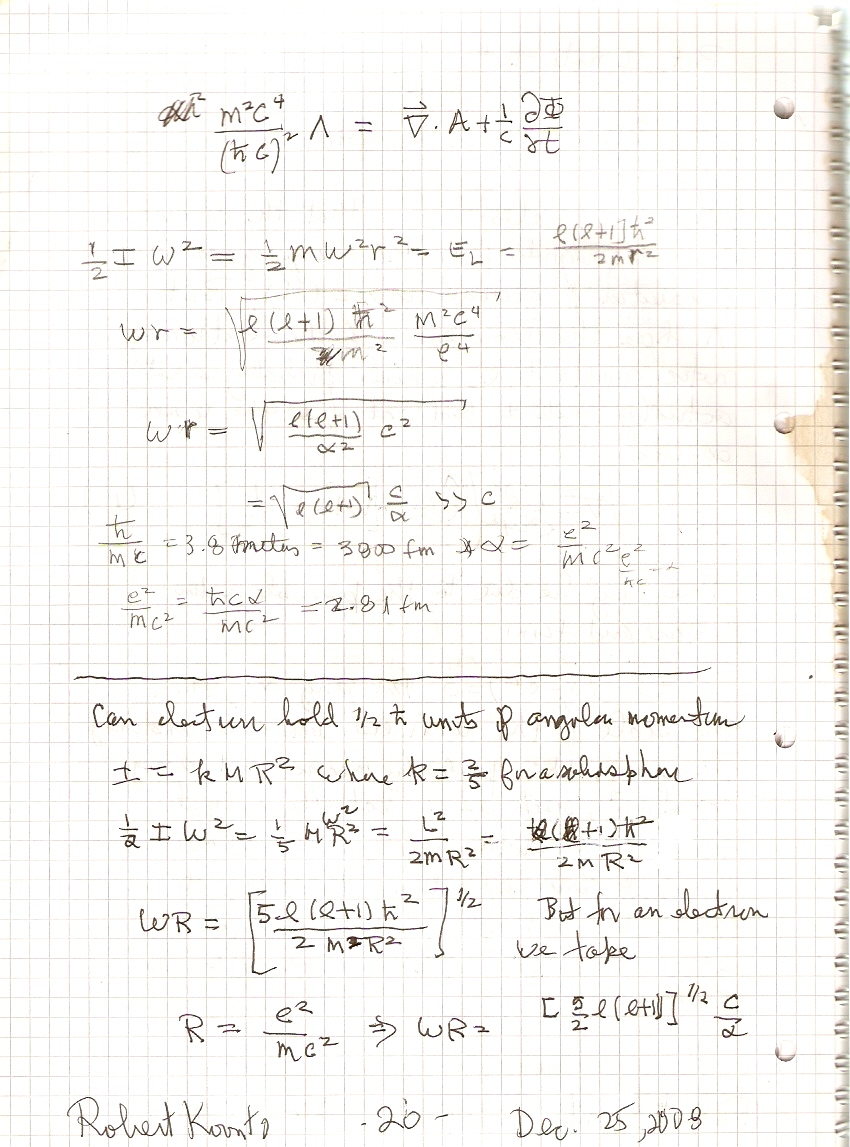 m²c⁴/(ħc)² Λ = ∇⃗·A + 1/c ∂Φ/∂t
1/2 I ω² = 1/2 m ω² r² = E_L = ℓ(ℓ+1)ħ²/2mr²
ωr = √(ℓ(ℓ+1)ħ²/m² m²c⁴/e⁴)
ωr = √(ℓ(ℓ+1)/α² c²)
= √ℓ(ℓ+1) c/α >> c
ħ/mc = 3.8 = 3800 fm α = e²/mc² e²/ħc
e²/mc² = ħcα/mc² = 2.81 fm
Can electron hold 1/2 ħ units of angular momentum
I = k M R² where k = 2/5 for a solid sphere
1/2 I ω² = 1/5 M R² ω² = L²/2mR² = ℓ(ℓ+1)ħ²/2mR²
ωR = [5ℓ(ℓ+1)ħ²/2M²R²]^1/2 But for an electron
we take
R = e²/mc² ⇒ ωR = [5/2 ℓ(ℓ+1)]^1/2 c/α
Robert -20- Dec. 25, 2008